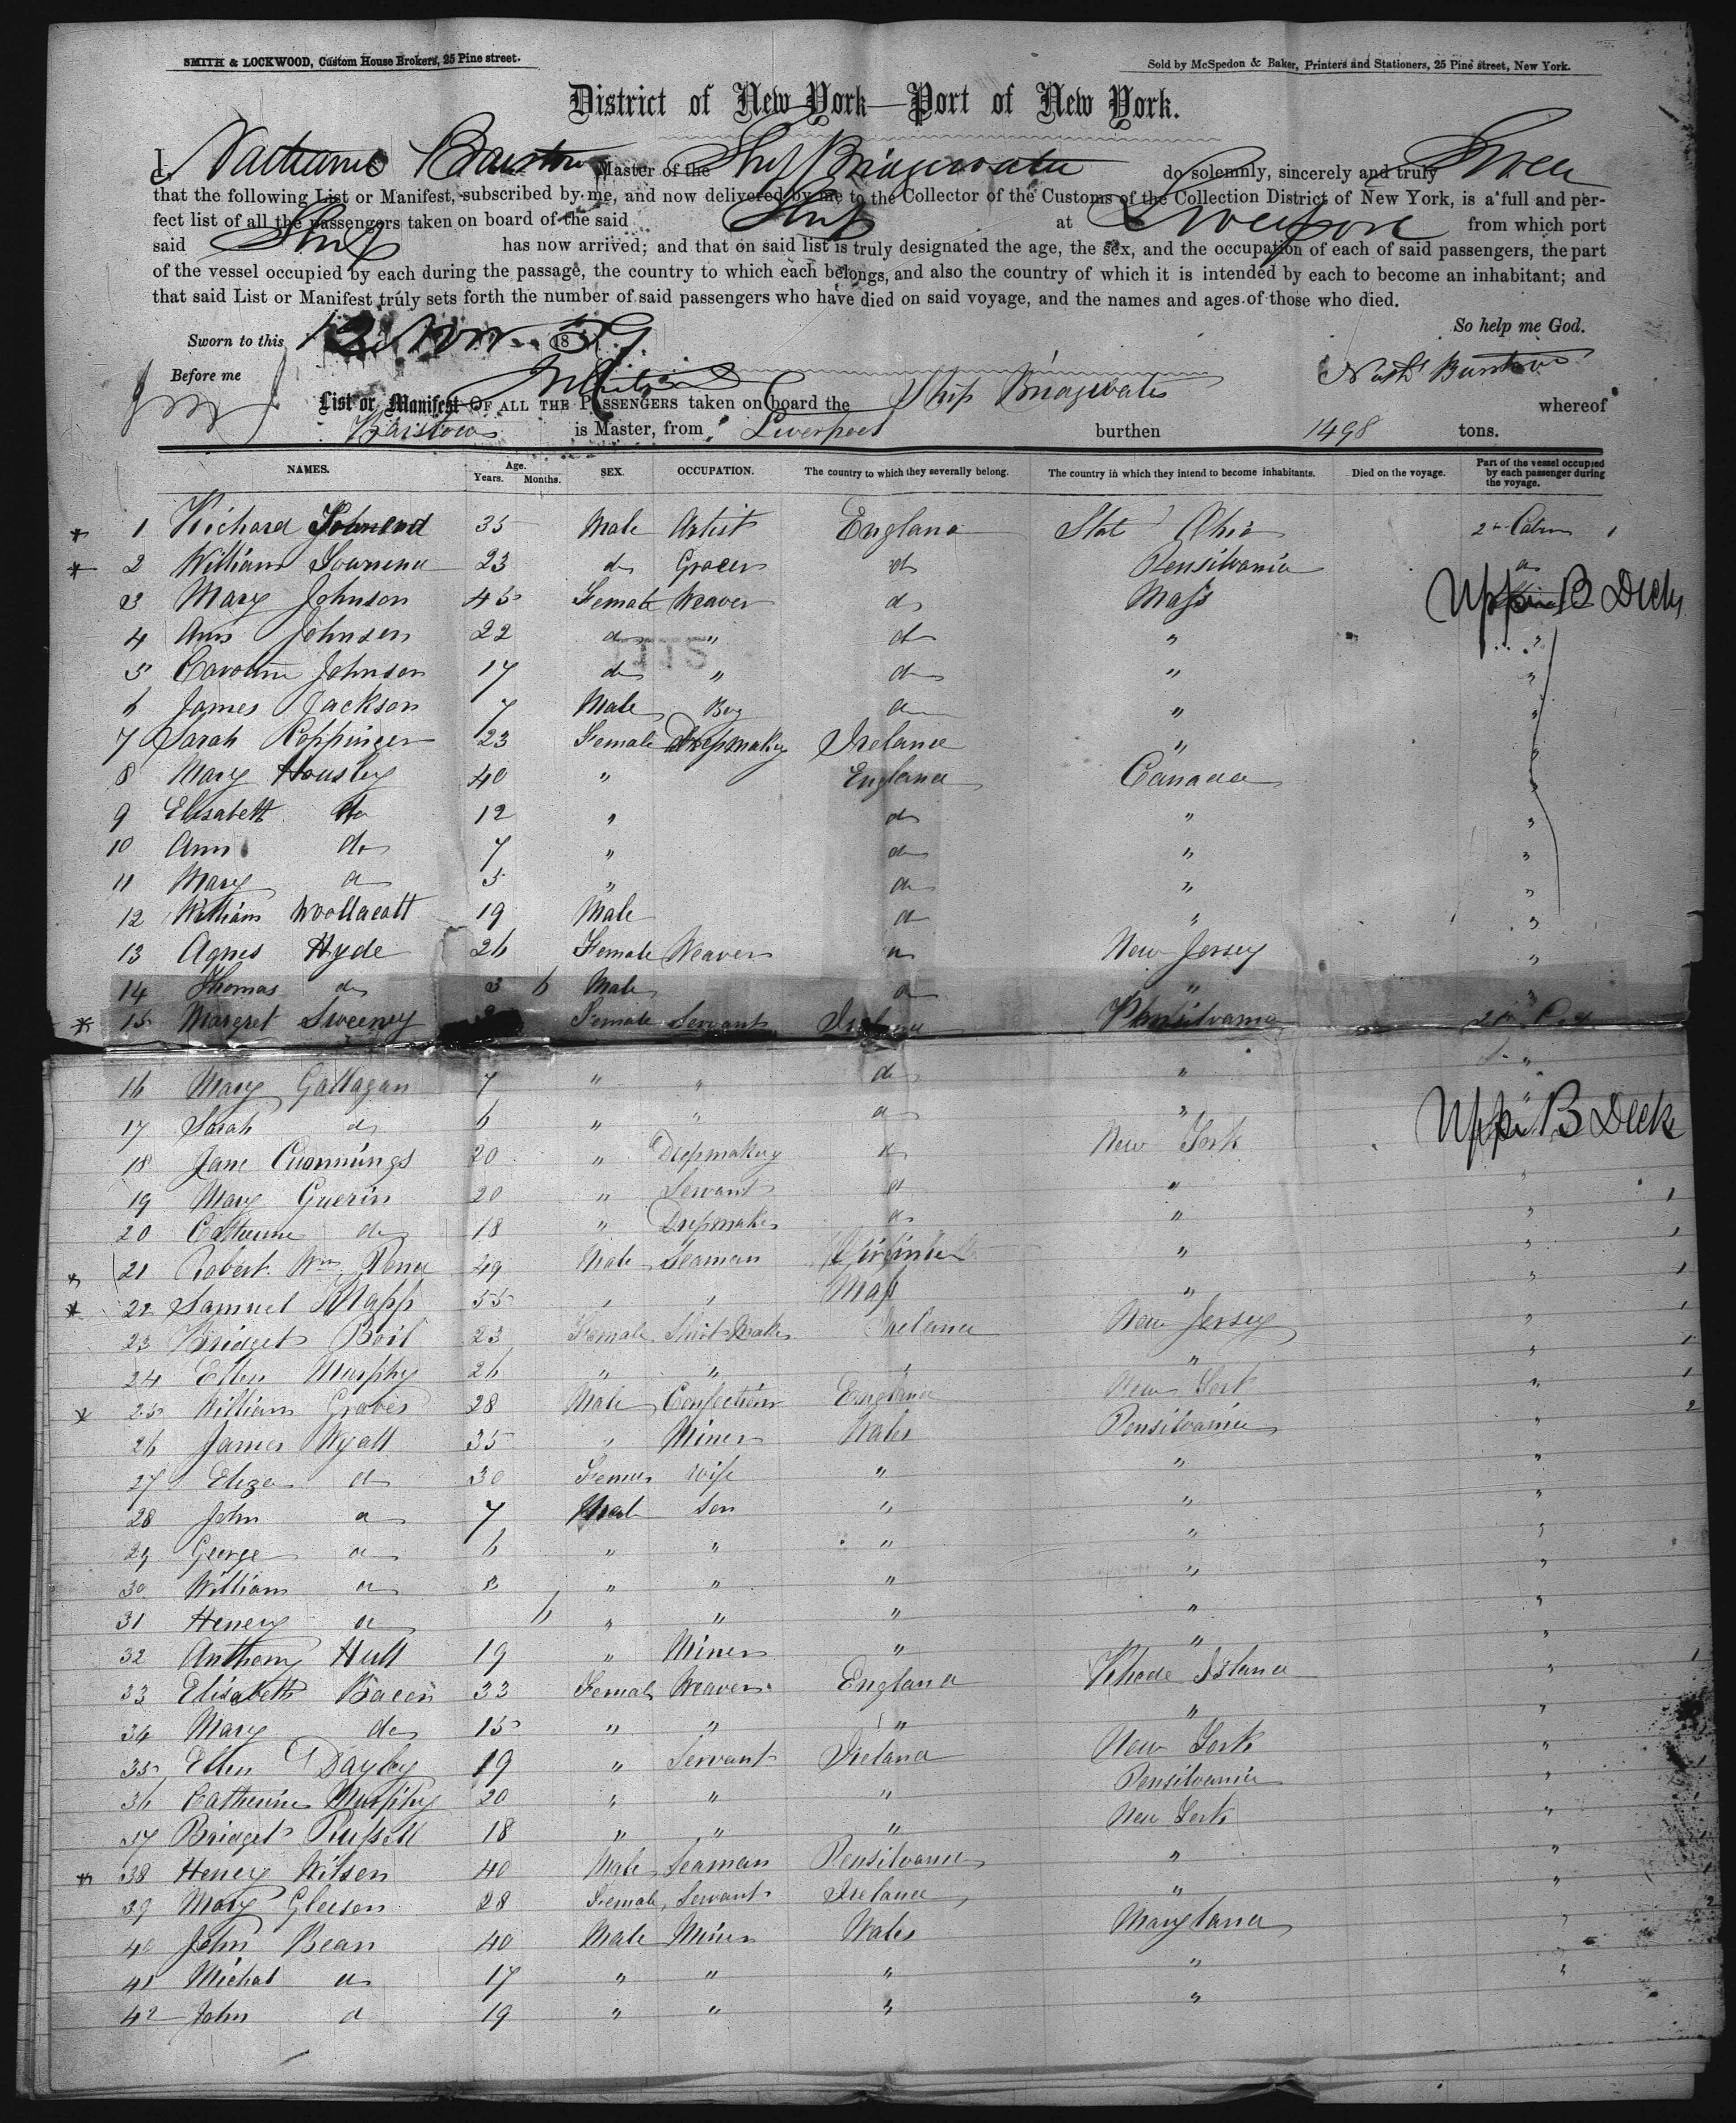 SMITH & LOCKWOOD, Custom House Brokers, 25 Pine street.
Sold by McSpedon & Baker, Printers and Stationers, 25 Pine street, New York.
District of New York—Port of New York.
I, Nathaniel Barstow Master of the Ship Bridgewater do solemnly, sincerely and truly Swear
that the following List or Manifest, subscribed by me, and now delivered by me to the Collector of the Customs of the Collection District of New York, is a full and per-
fect list of all the passengers taken on board of the said Ship at Liverpool from which port
said Ship has now arrived; and that on said list is truly designated the age, the sex, and the occupation of each of said passengers, the part
of the vessel occupied by each during the passage, the country to which each belongs, and also the country of which it is intended by each to become an inhabitant; and
that said List or Manifest truly sets forth the number of said passengers who have died on said voyage, and the names and ages of those who died.
So help me God.
Sworn to this 12 Nov 1859
Before me
Nathl Barstow
List or Manifest OF ALL THE PASSENGERS taken on board the Ship Bridgewater whereof
Barstow is Master, from Liverpool burthen 1498 tons.
NAMES. Age. Years. Months. SEX. OCCUPATION. The country to which they severally belong. The country in which they intend to become inhabitants. Died on the voyage. Part of the vessel occupied by each passenger during the voyage.
* 1 Richard 35 Male Artist England State Ohio 2nd Cabin 1
* 2 William 23 do Grocer do Pensilvania do
3 Mary Johnson 45 Female Weaver do Mass Upper B Deck
4 Ann Johnson 22 do " do " "
5 Caroline Johnson 17 do " do " "
6 James Jackson 7 Male Boy do " "
7 Sarah Coppinger 23 Female Dressmaker Ireland " "
8 Mary Housley 40 " England Canada "
9 Elisabeth do 12 " do " "
10 Ann do 7 " do " "
11 Mary do 5 " do " "
12 William Woollacott 19 Male do " "
13 Agnes Hyde 26 Female Weaver do New Jersey "
14 Thomas do 3 6 Male do " "
* 15 Margret Sweeney Female Servant Ireland Pensilvania 2nd
16 Mary Gallagan 7 " " do " "
17 Sarah do 6 " " do " "
Upper B Deck
18 Jane Cummings 20 " Dressmaker do New York
19 Mary Guerin 20 " Servant do " "
20 Catherine do 18 " Dressmaker do " "
* 21 Robert Wm 49 Male Seaman Virginia " "
* 22 Samuel Knapp 55 " " Mass " "
23 Bridget Boil 23 Female Shirt Maker Ireland New Jersey "
24 Ellen Murphy 26 " " " " "
* 25 William Groves 28 Male Confectioner England New York "
26 James Wyatt 35 " Miner Wales Pensilvania "
27 Eliza do 30 Female Wife " " "
28 John do 7 Male Son " " "
29 George do 6 " " " " "
30 William do " " " " "
31 Henery do 6 " " " " "
32 Anthony Hull 19 " Miner " " "
33 Elisabeth Bacon 33 Female Weaver England Rhode Island "
34 Mary do 15 " " " " "
35 Ellen Dayley 19 " Servant Ireland New York "
36 Catherine Murphy 20 " " " Pensilvania "
37 Bridget Russell 18 " " " New York "
* 38 Henery Wilson 40 Male Seaman Pensilvania " "
39 Mary Gleeson 28 Female Servant Ireland " "
40 John Bean 40 Male Miner Wales Maryland "
41 Michal do 17 " " " " "
42 John do 19 " " " "